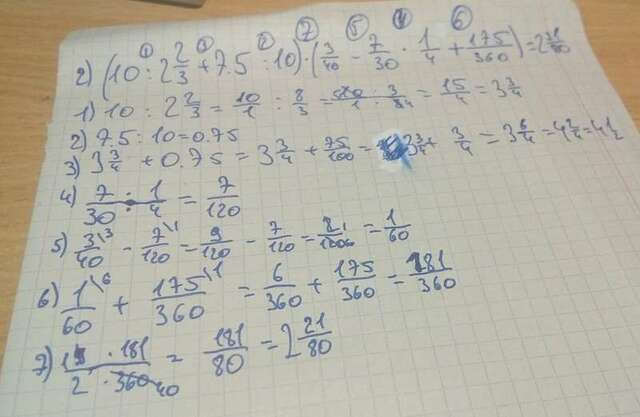 ① ③ ② ⑦ ⑤ ④ ⑥
2) (10 : 2 2/3 + 7.5 : 10) · (3/40 - 7/30 · 1/4 + 175/360) = 2 21/80
1) 10 : 2 2/3 = 10/1 : 8/3 = 10/1 · 3/8 4 = 15/4 = 3 3/4
2) 7.5 : 10 = 0.75
3) 3 3/4 + 0.75 = 3 3/4 + 75/100 = 3 3/4 + 3/4 = 3 6/4 = 4 2/4 = 4 1/2
4) 7/30 · 1/4 = 7/120
5) 3\3/40 - 7\1/120 = 9/120 - 7/120 = 2 1/120 60 = 1/60
6) 1\6/60 + 175\1/360 = 6/360 + 175/360 = 181/360
7) · 181/2 · 360 40 = 181/80 = 2 21/80